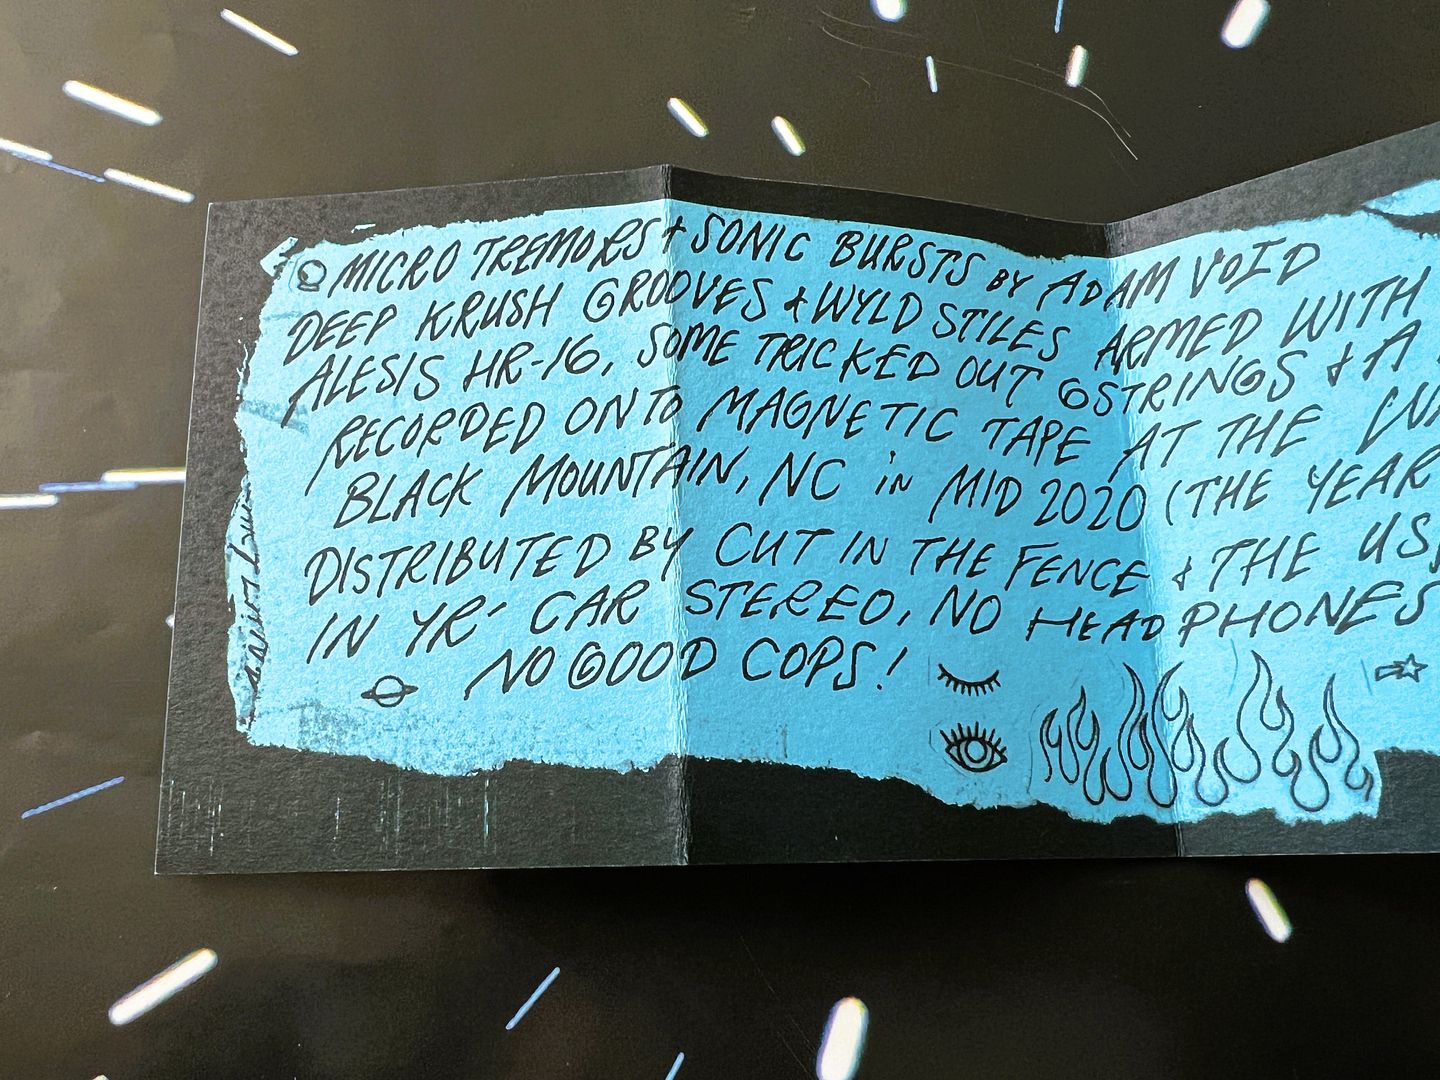 MICRO TREMORS + SONIC BURSTS BY ADAM VOID
DEEP KRUSH GROOVES & WYLD STILES ARMED WITH
ALESIS HR-16, SOME TRICKED OUT 6STRINGS & A
RECORDED ONTO MAGNETIC TAPE AT THE
BLACK MOUNTAIN, NC in MID 2020 (THE YEAR
DISTRIBUTED BY CUT IN THE FENCE & THE
IN YR' CAR STEREO, NO HEADPHONES
NO GOOD COPS!